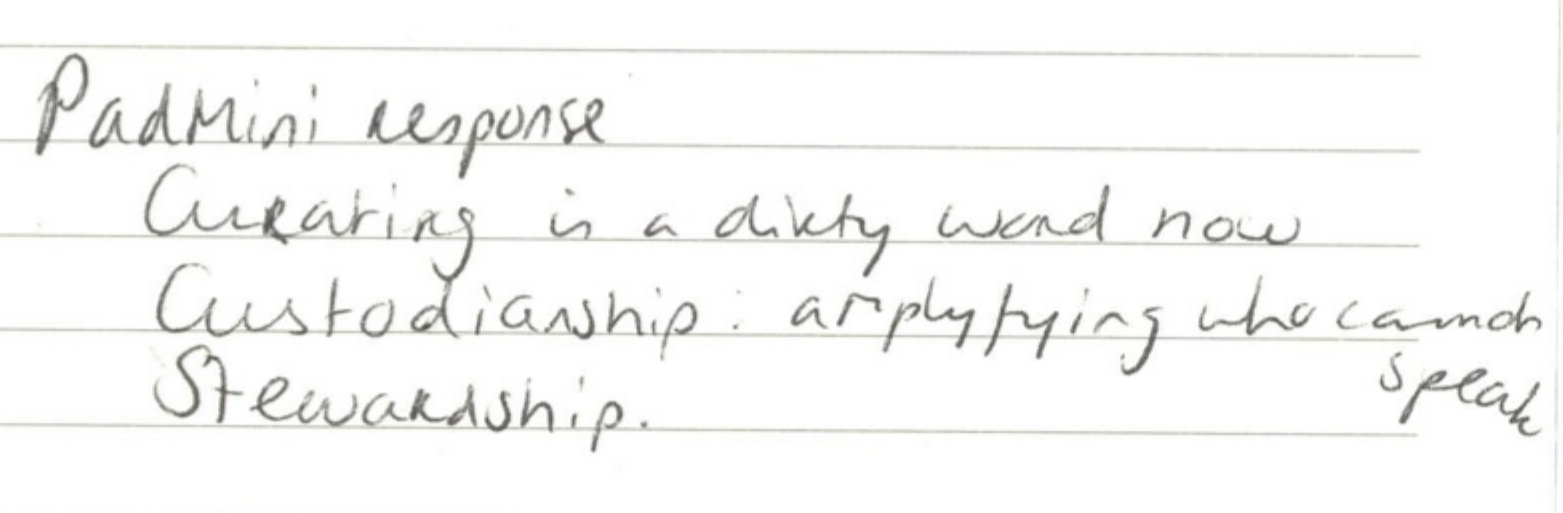 PadMini response
Curating is a dirty word now
Custodianship: amplyfying who cannot
speak
Stewardship.